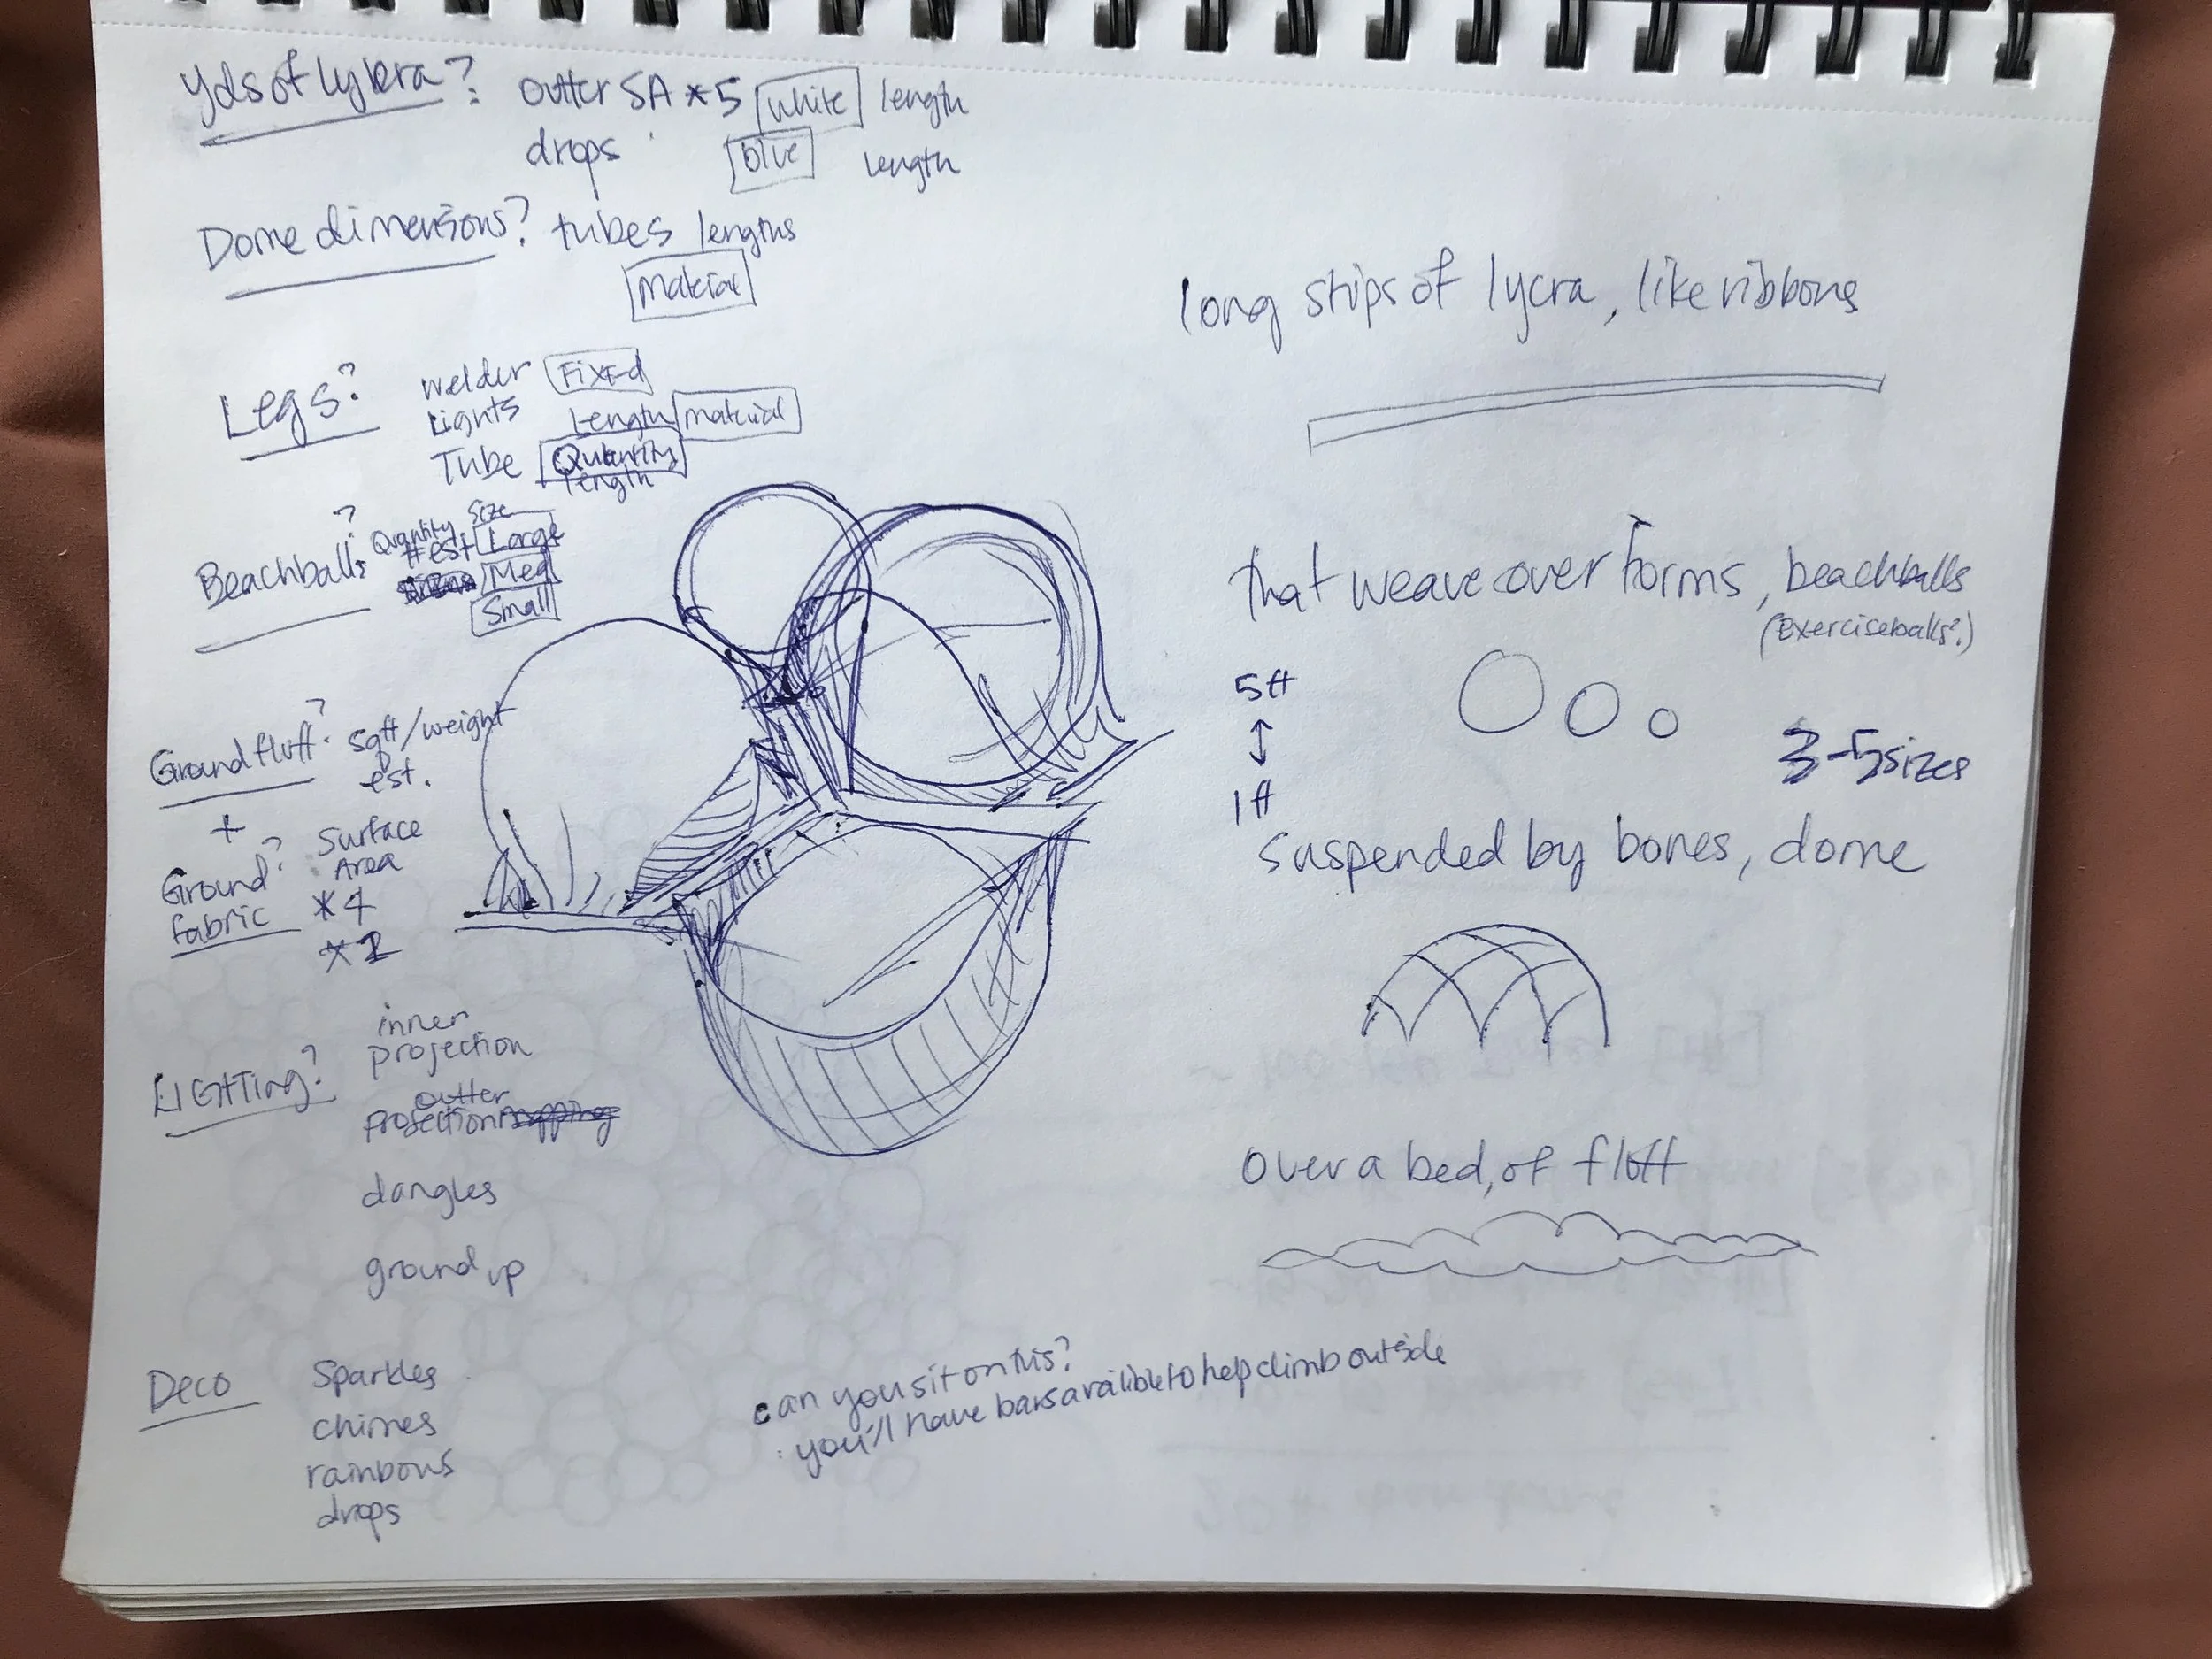 Yds of lykra? outter SA *5 white length
drops blue length
Dome dimensions? tubes lengths
Material
Legs? welder Fixed
Lights Length material
Tube Quantity
length
Beachballs? Quantity Size
#est Large
Med
Small
Ground fluff? sqft/weight
est.
+
Ground? Surface
fabric Area
*4
*2
LIGHTing? inner
projection
outter
projection
dangles
ground up
Deco Sparkles
chimes
rainbows
drops
long strips of lycra, like ribbons
that weave over forms, beachballs
(Exerciseballs?)
5ft
1ft
3-5 sizes
Suspended by bones, dome
Over a bed, of fluff
can you sit on this?
you'll have bars availible to help climb outside